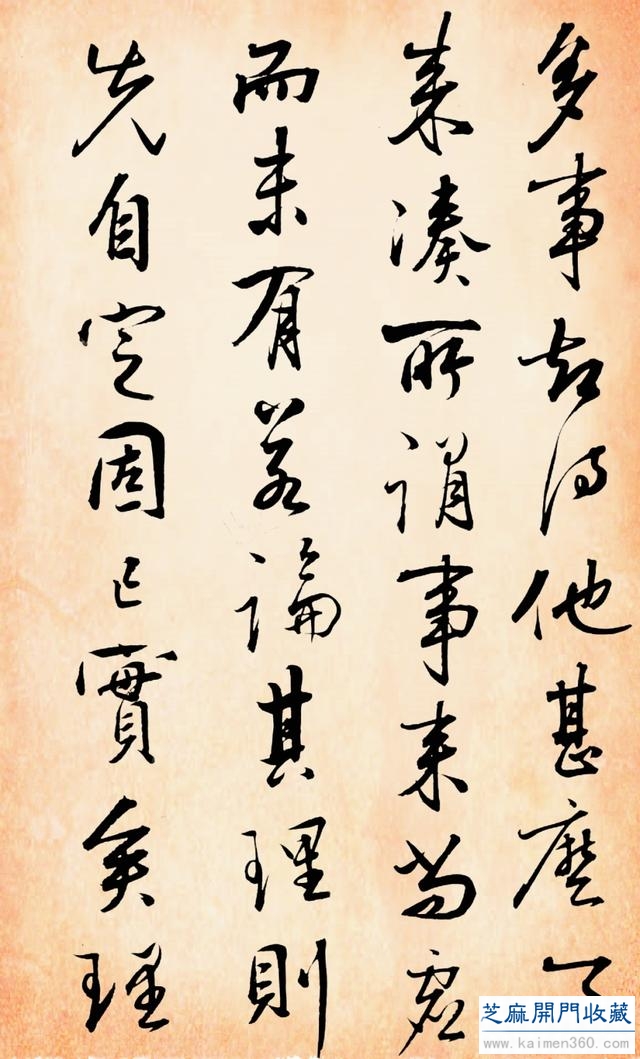 多事却待他甚麼
来湊所謂事来尚虛
而未有若論其理則
先自定固已實矣理
芝麻開門收藏
www.kaimen360.com